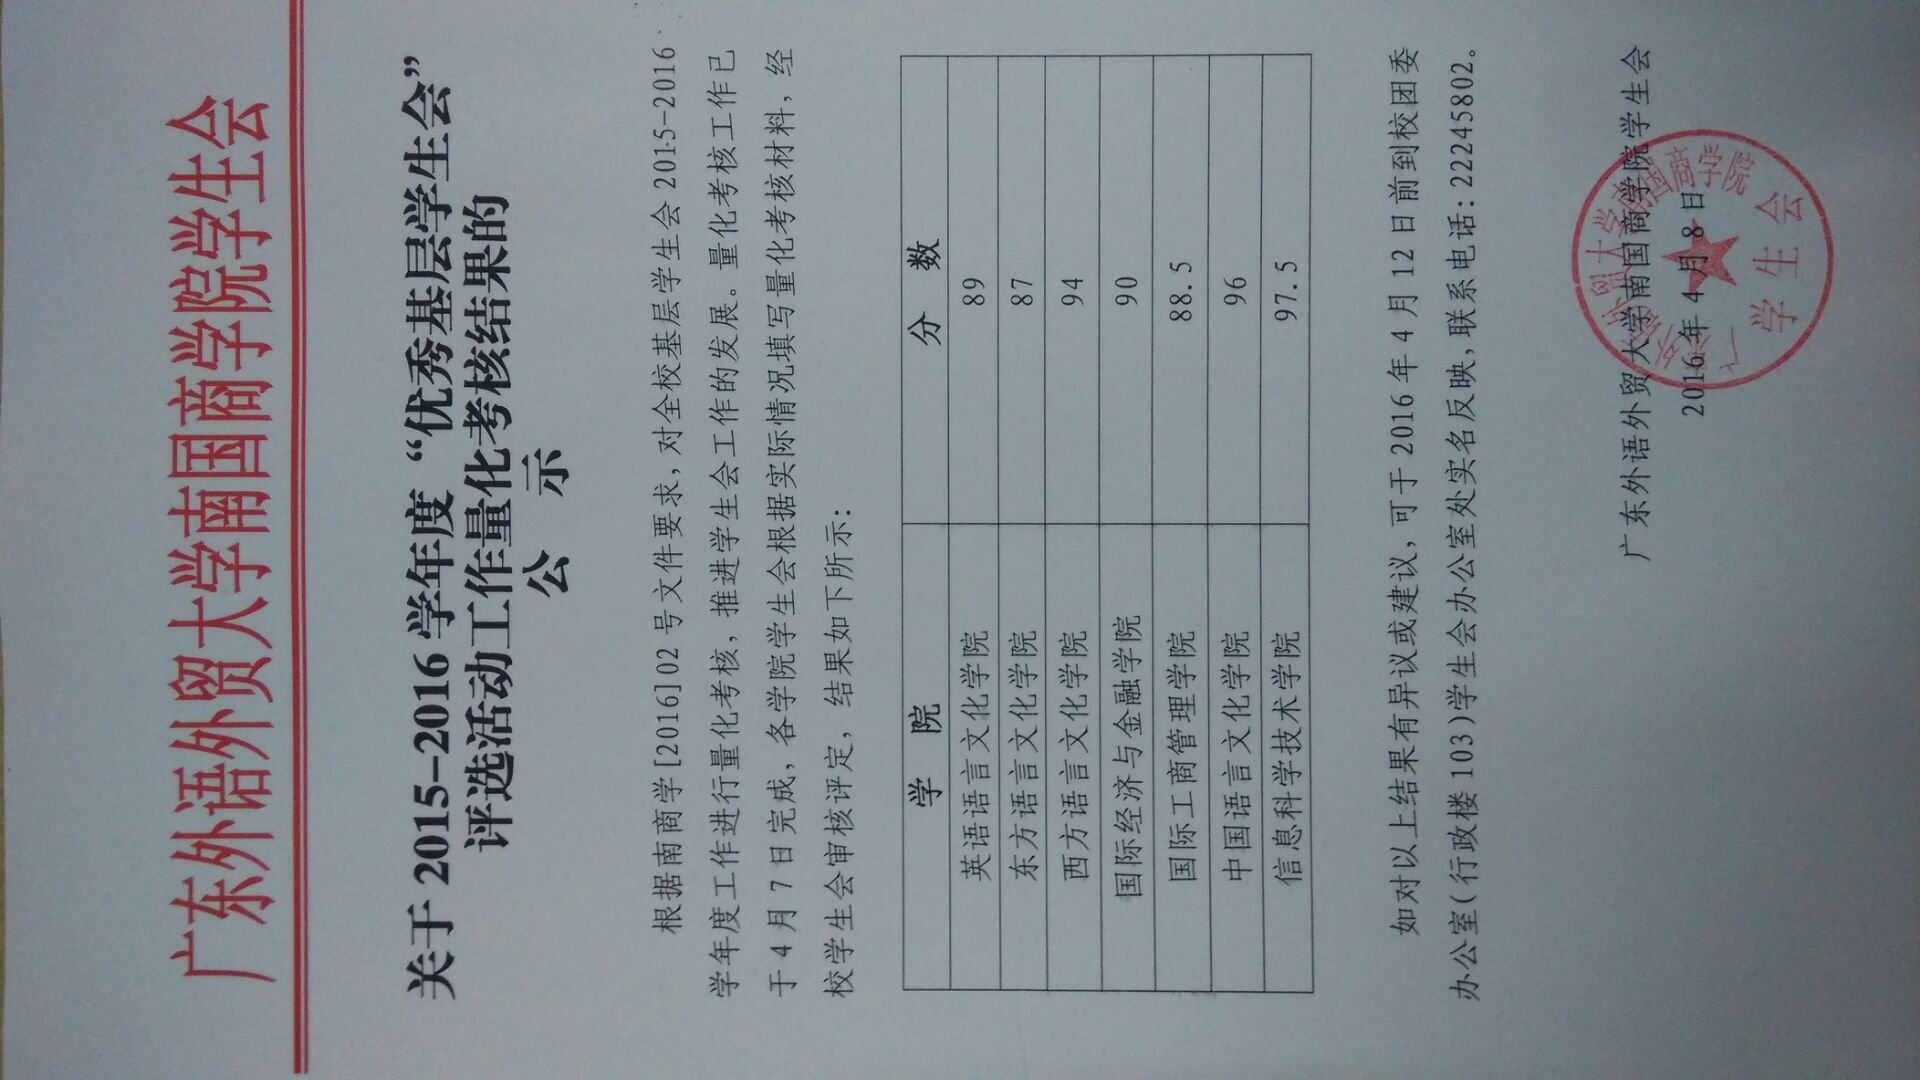 广东外语外贸大学南国商学院学生会
关于 2015-2016 学年度 “优秀基层学生会”
评选活动工作量化考核结果的
公 示
根据南商学[2016]02 号文件要求,对全校基层学生会 2015-2016
学年度工作进行量化考核，推进学生会工作的发展。量化考核工作已
于 4 月 7 日完成，各学院学生会根据实际情况填写量化考核材料，经
校学生会审核评定，结果如下所示：
学 院 分 数
英语语言文化学院 89
东方语言文化学院 87
西方语言文化学院 94
国际经济与金融学院 90
国际工商管理学院 88.5
中国语言文化学院 96
信息科学技术学院 97.5
如对以上结果有异议或建议，可于 2016 年 4 月 12 日前到校团委
办公室(行政楼 103)学生会办公室处实名反映,联系电话:22245802。
广东外语外贸大学南国商学院学生会
2016 年 4 月 8 日
广东外语外贸大学南国商学院
学生会